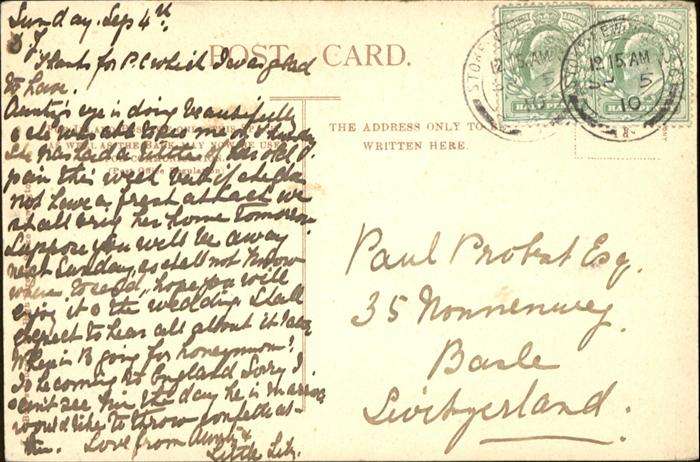 Sunday. Sep 4th
D. P.
Thanks for P.C which I was glad
to have.
Aunty's eye is doing beautifully
& she was able to see me on Sunday
She has had a little of her old
pain this week but if she does
not have a fresh attack we
shall bring her home tomorrow
Suppose you will be away
next Sunday, so shall not know
where to send, hope you will
enjoy it & the wedding. I shall
expect to hear all about it
Where is B going for honeymoon?
Is he coming to England Sorry I
can't see him the day he is married
would like to throw confetti at
him. Love from Aunty &
Little Lily.
POST CARD.
THE ADDRESS ONLY TO BE
WRITTEN HERE.
STOKE NEWINGTON
12.15 AM
SP 5
10
HALFPENNY
12.15 AM
SP 5
10
HALFPENNY
Paul Probst Esq.
35 Nonnenweg.
Basle
Switzerland.